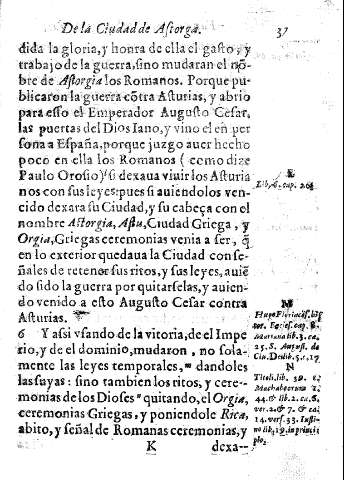 De la Ciudad de Astorga. 37
dida la gloria, y honra de ella el gasto, y
trabajo de la guerra, sino mudaran el nõ-
bre de Astorgia los Romanos. Porque pu-
blicaron la guerra cõtra Asturias, y abrio
para esso el Emperador Augusto Cesar,
las puertas del Dios Iano, y vino el eñ per
sona a España, porque juzgo auer hecho
poco en ella los Romanos (como dize
Paulo Orosio) si dexaua viuir los Asturia
nos con sus leyes: pues si auiendolos ven-
cido dexara su Ciudad, y su cabeça con el
nombre Astorgia, Astu, Ciudad Griega, y
Orgia, Griegas ceremonias venia a ser, q̃
en lo exterior quedaua la Ciudad con se-
ñales de retener sus ritos, y sus leyes, auiẽ
do sido la guerra por quitarselas, y auien-
do venido a esto Augusto Cesar contra
Asturias.
6 Y assi vsando de la vitoria, de el Impe
rio, y de el dominio, mudaron, no sola-
mente las leyes temporales, dandoles
las suyas: sino tambien los ritos, y cere-
monias de los Dioses quitando, el Orgia,
ceremonias Griegas, y poniendole Rica,
abito, y señal de Romanas ceremonias, y
K dexa--
L
Lib. 6. cap. 20.
M
Hugo Floriacẽs. lib
Eccles. cap.
Mariana lib. 3. ca.
25. S. August. de
Ciu. Dei lib. 5. c. 17
N
Tit. li. lib. 39.
Machabeorum
44. & lib. 2. ca. 8.
ver. 2. & 7. & ca.
14. vers. 33. Iusti-
no lib, 19. in princi
pio.